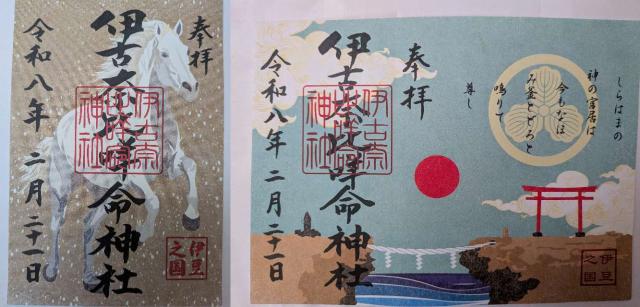 奉拝
伊古奈比咩命神社
伊古奈
比咩命
神社
令和八年 二月二十一日
伊豆
之国
しらはまの
神の宮居は
今もなほ
み釜とどろと
鳴りて
尊し
奉拝
伊古奈比咩命神社
伊古奈
比咩命
神社
令和八年 二月二十一日
伊豆
之国